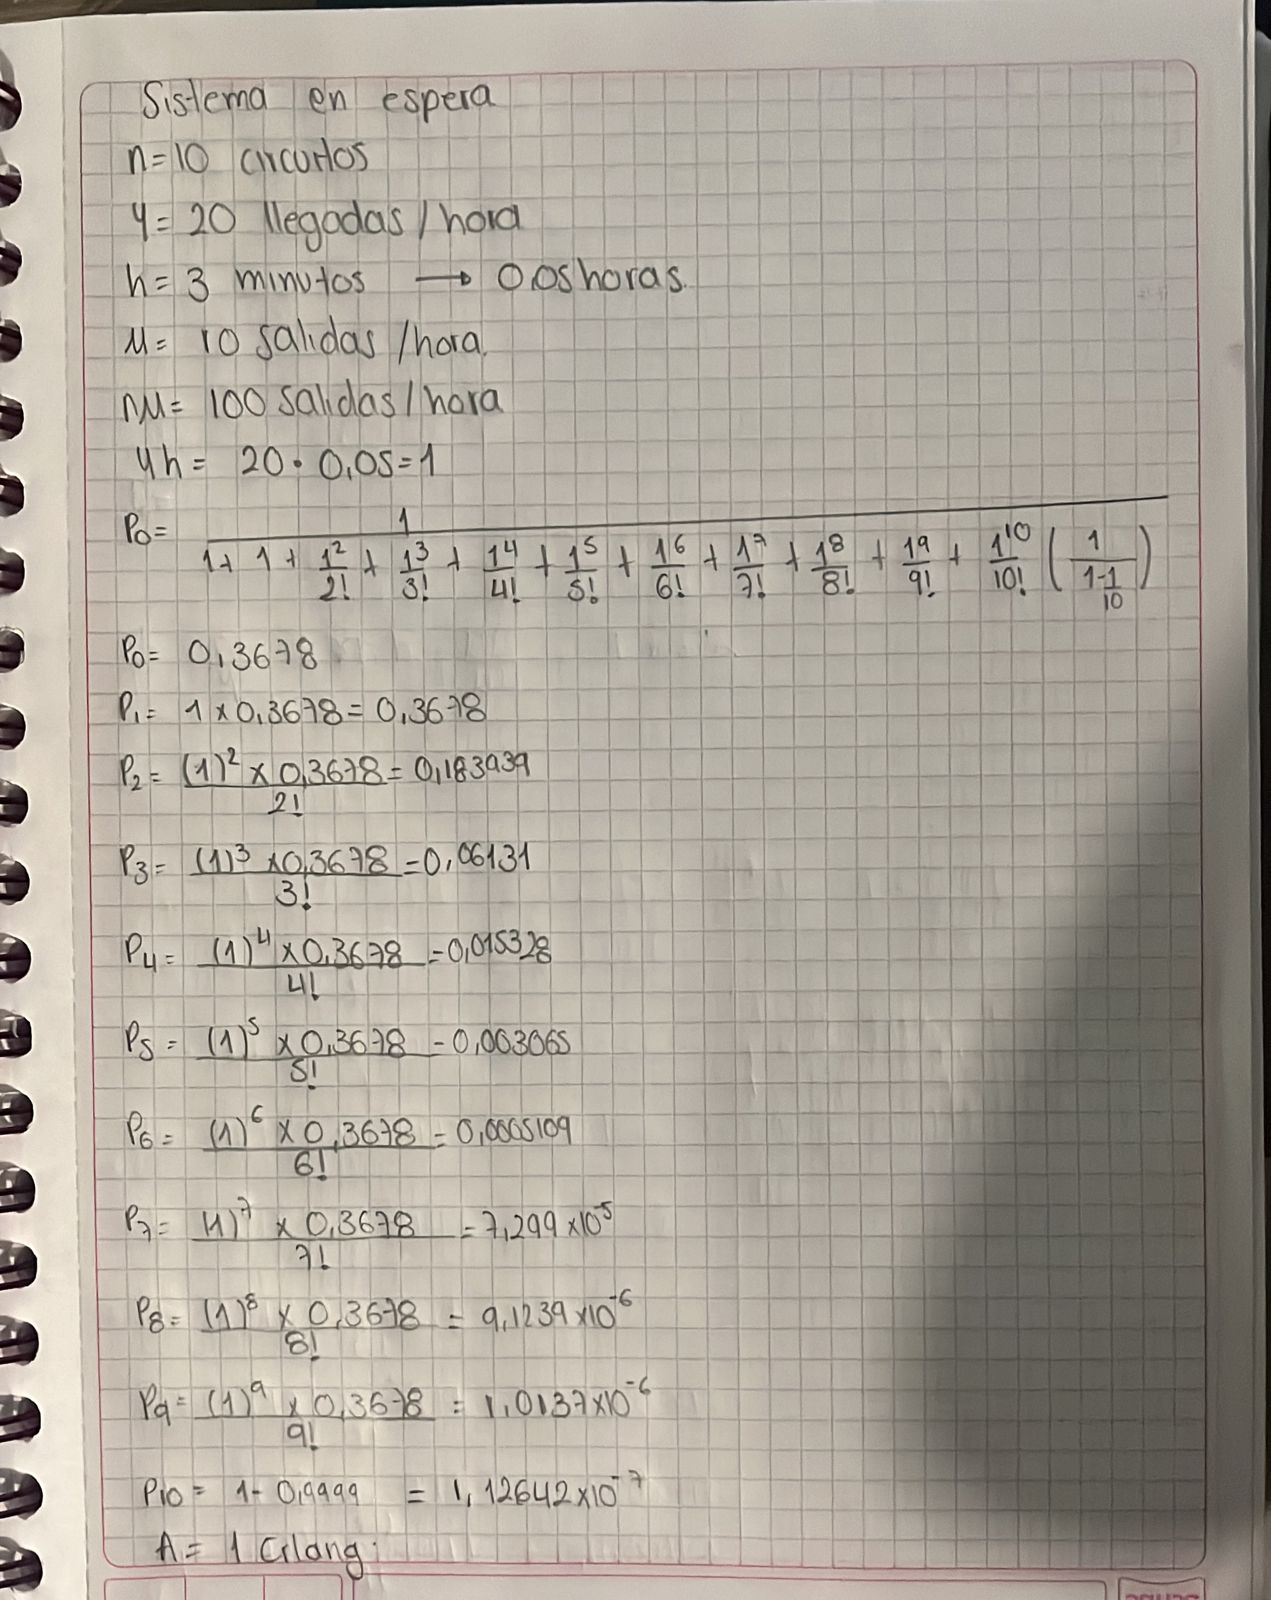 Sistema en espera
n=10 circuitos
y= 20 llegadas/hora
h= 3 minutos → 0.05 horas.
μ= 10 salidas /hora.
nμ= 100 salidas/hora
yh= 20 · 0,05=1
P0= 1 / (1 + 1 + 1^2/2! + 1^3/3! + 1^4/4! + 1^5/5! + 1^6/6! + 1^7/7! + 1^8/8! + 1^9/9! + 1^10/10! (1/(1-1/10)))
P0= 0,3678
P1= 1 x 0,3678 = 0,3678
P2= (1)^2 x 0,3678 / 2! = 0,183939
P3= (1)^3 x 0,3678 / 3! = 0,06131
P4= (1)^4 x 0,3678 / 4! = 0,015328
P5= (1)^5 x 0,3678 / 5! = 0,003065
P6= (1)^6 x 0,3678 / 6! = 0,0005109
P7= (1)^7 x 0,3678 / 7! = 7,299 x10^-5
P8= (1)^8 x 0,3678 / 8! = 9,1239 x10^-6
P9= (1)^9 x 0,3678 / 9! = 1,0137x10^-6
P10= 1- 0,9999 = 1,12642x10^-7
A= 1 Erlang.